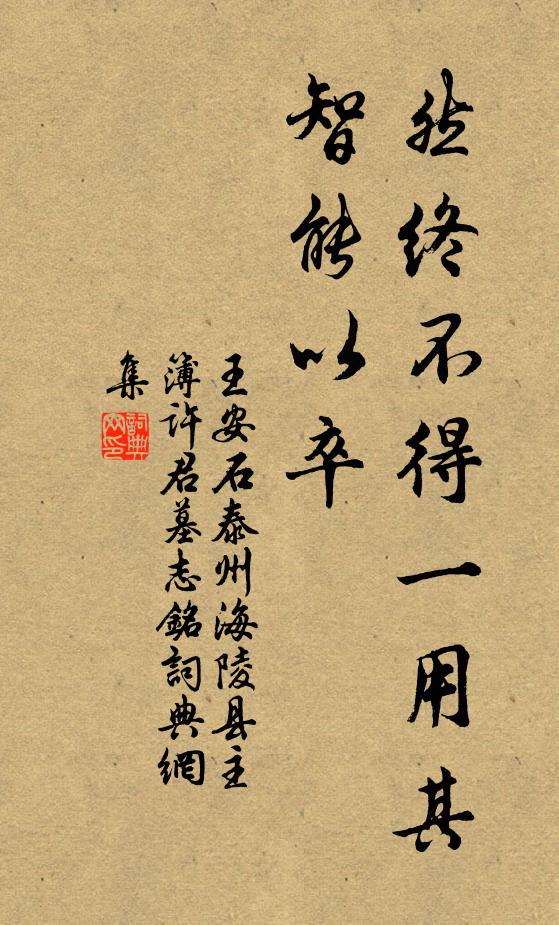 然终不得一用其
智能以卒
王安石泰州海陵县主
簿许君墓志銘詞典網
集
詞典網印